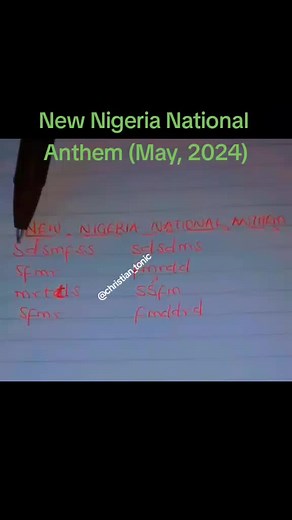 New Nigeria National
Anthem (May, 2024)
NEW NIGERIA NATIONAL
sdsmfss sdsdms
sfmr
ssfm
sfmr fmddrd
@christian_tonic